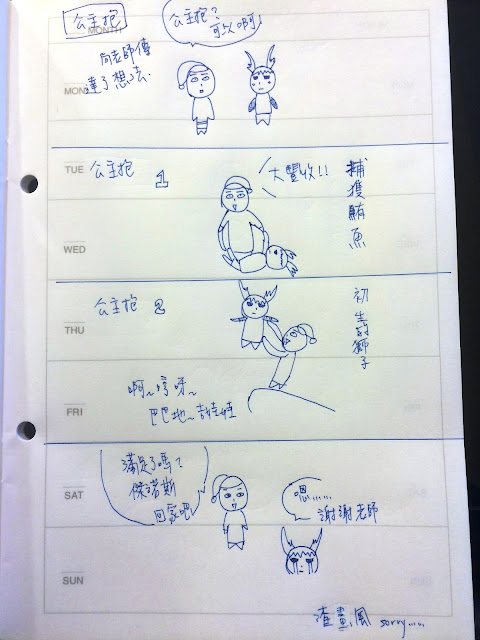 公主抱
公主抱?
可以啊
MONTH
向老師傳
達了想法.
MON
TUE
公主抱 1
大豐收!!
捕獲鮪魚
WED
公主抱 2
初生的獅子
THU
啊~哼呀~
巴巴地~
FRI
滿足了嗎?
傑諾斯
回家吧
SAT
嗯......
謝謝老師
SUN
渣畫風 sorry......